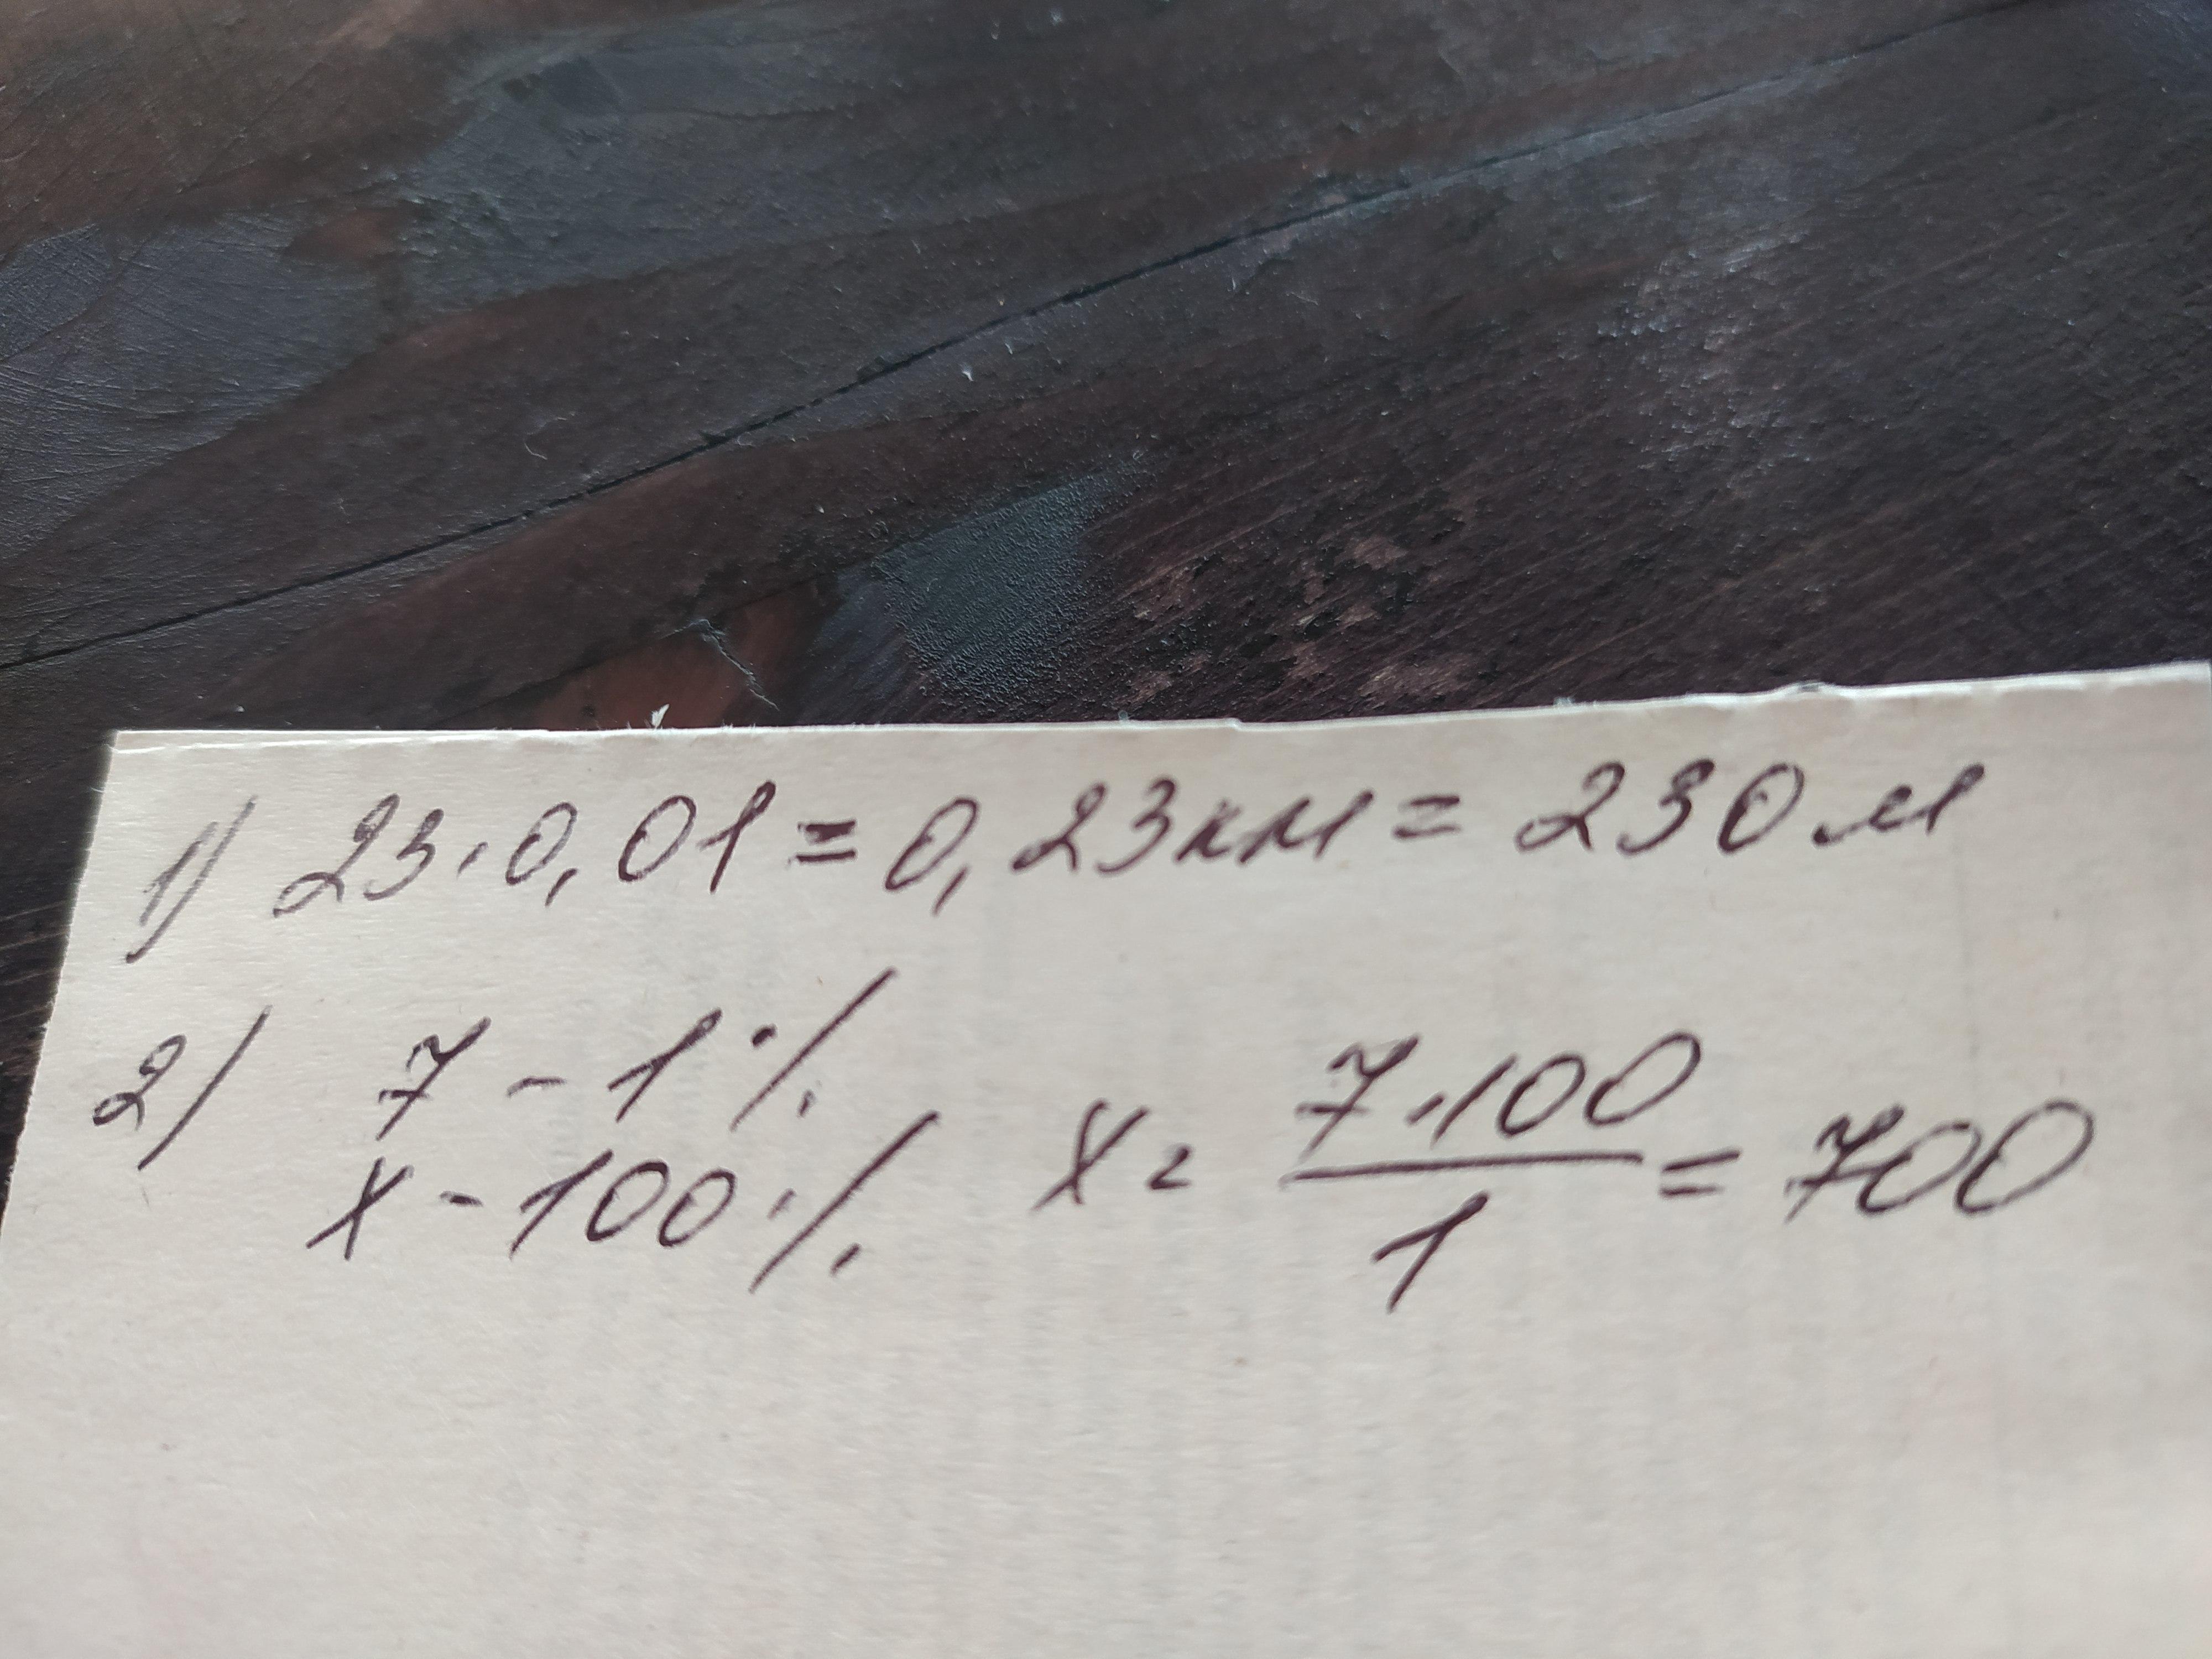 1) 23·0,01=0,23км=230м
2) 7-1%
x-100% x= 7·100/1=700